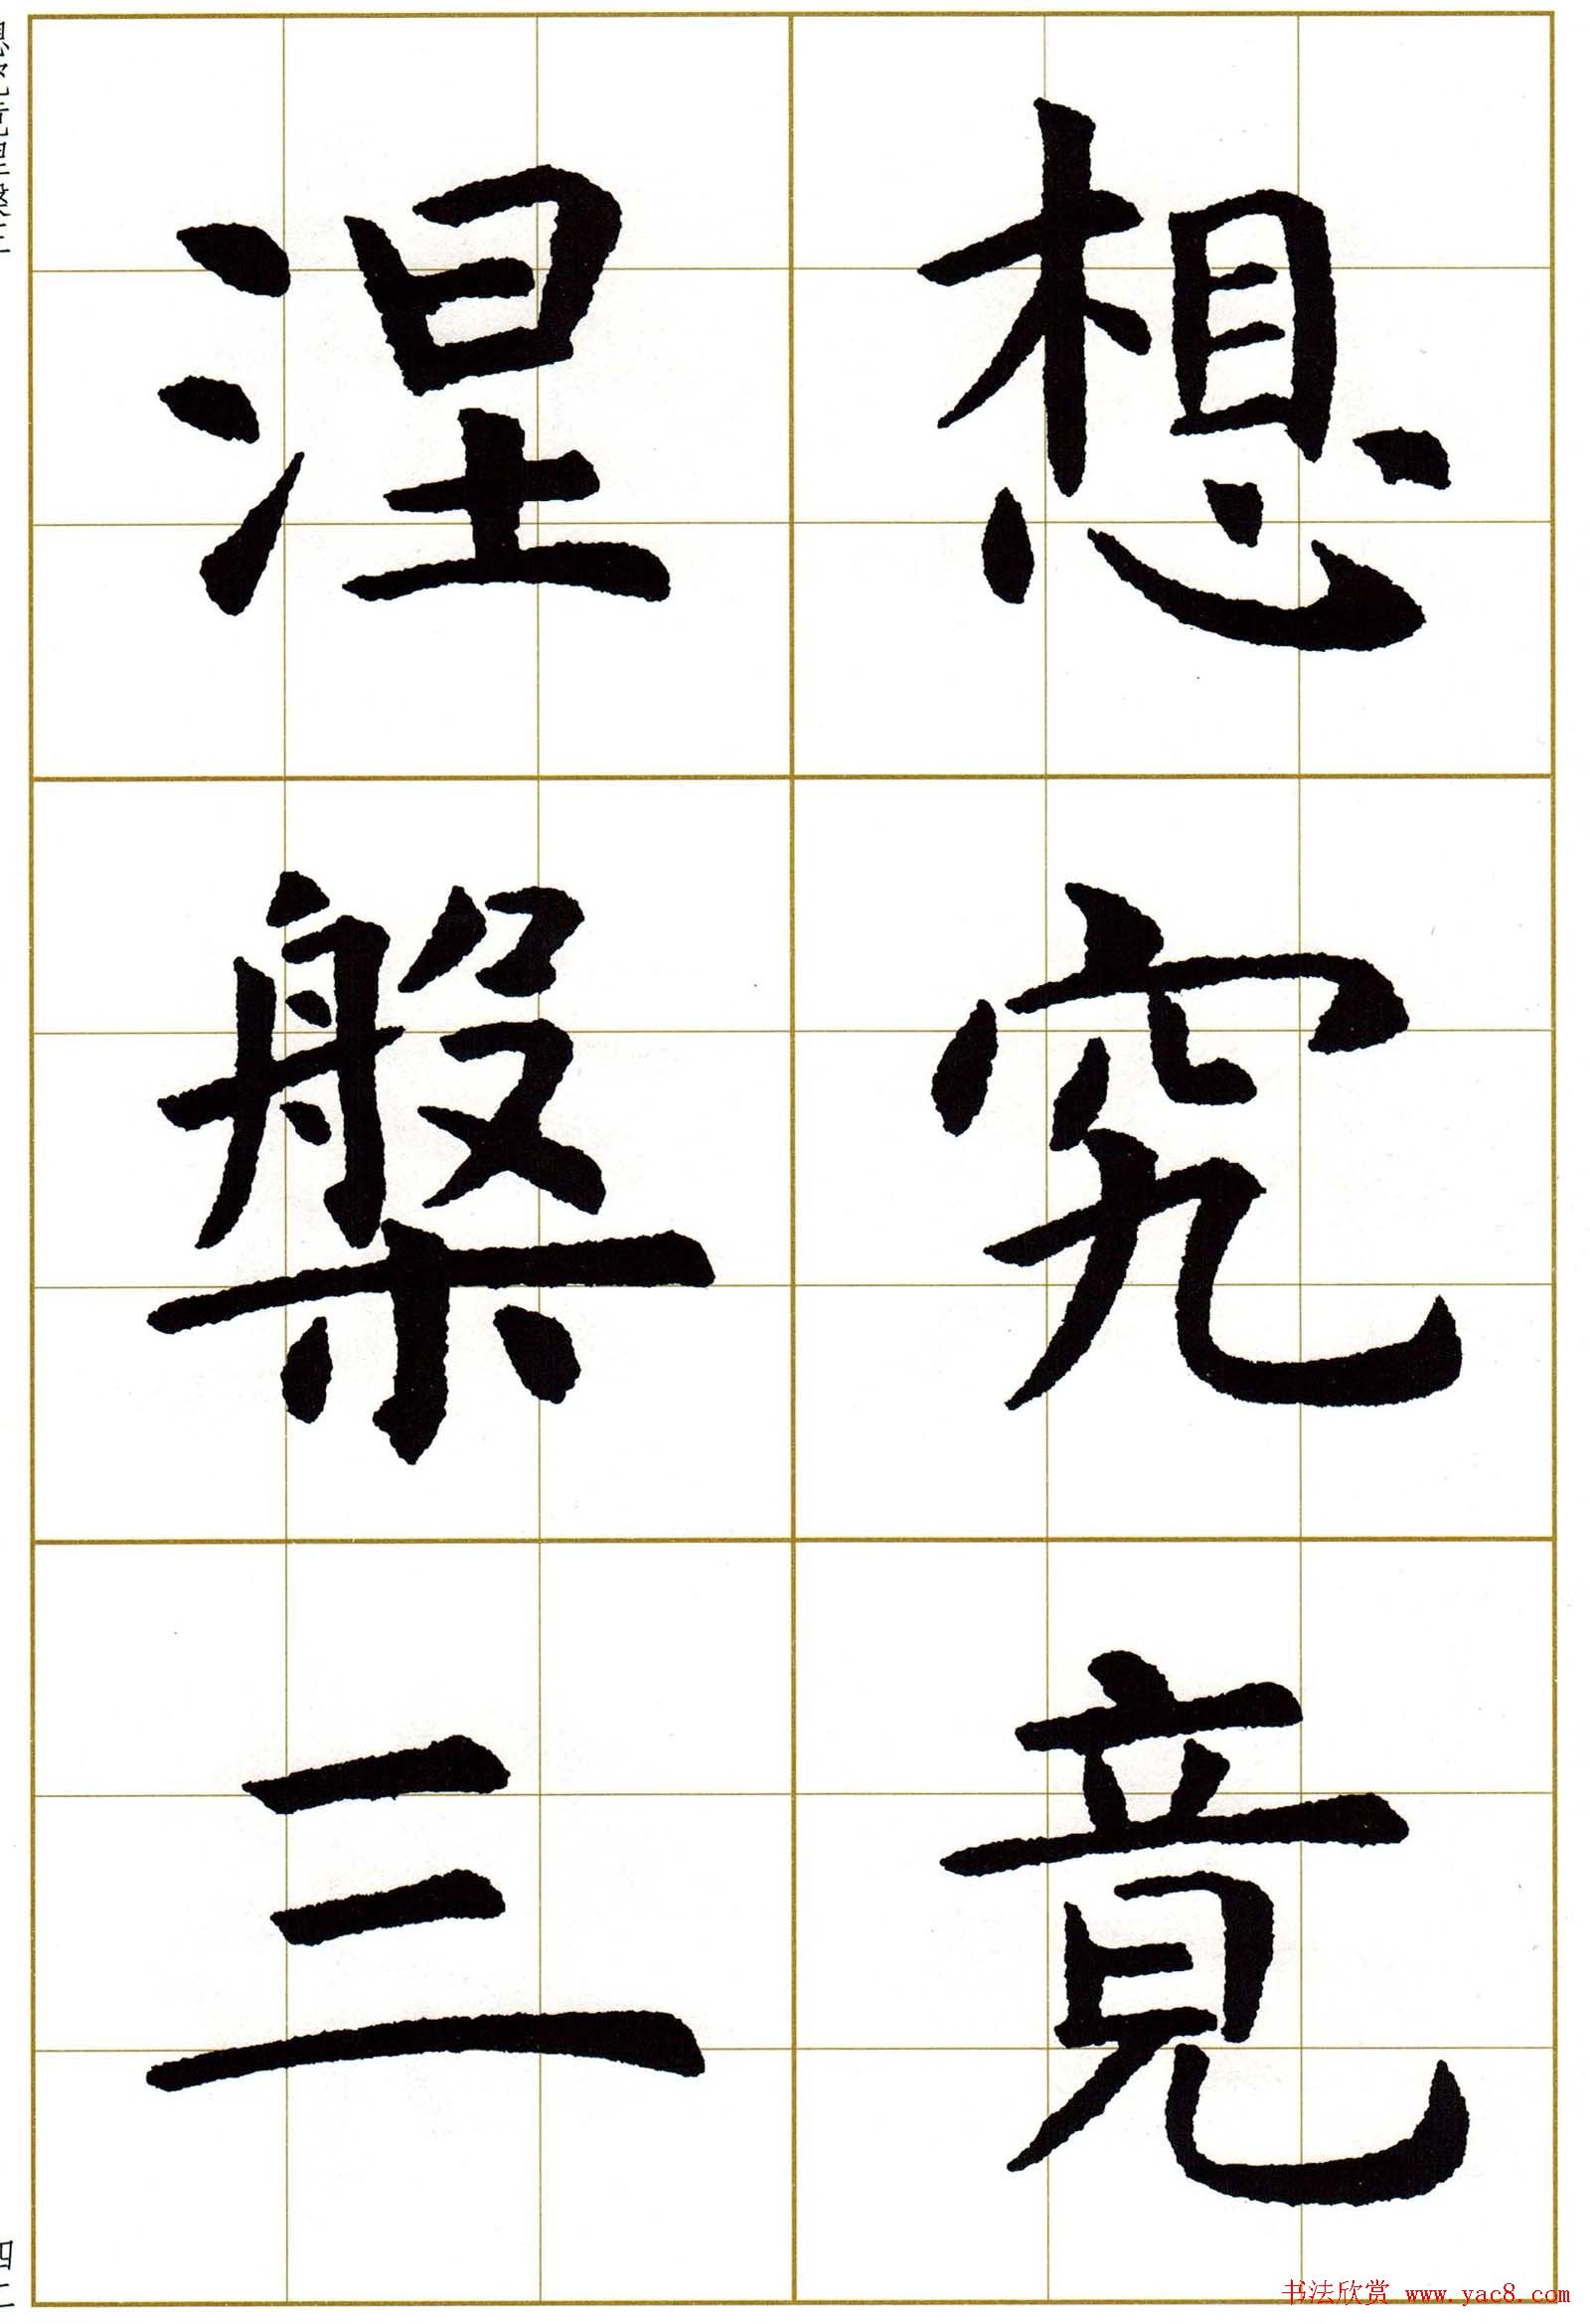 想究竟
涅槃三
想究竟涅槃三
四二
书法欣赏 www.yac8.com